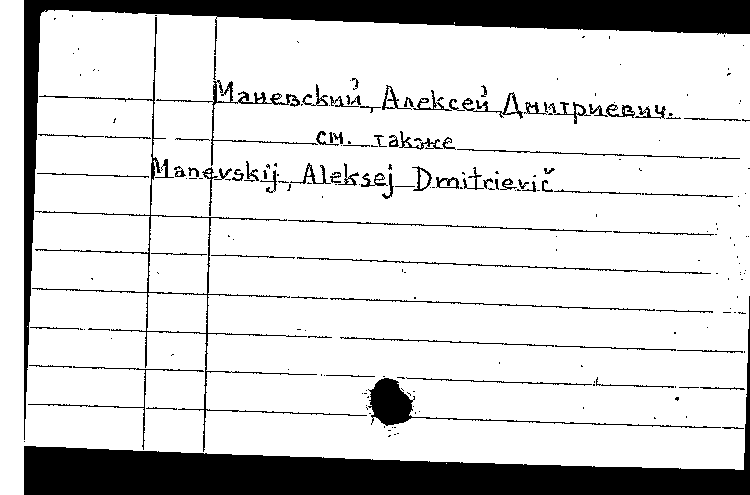 Маневский, Алексей Дмитриевич.
см. также
Manevskij, Aleksej Dmitrievič